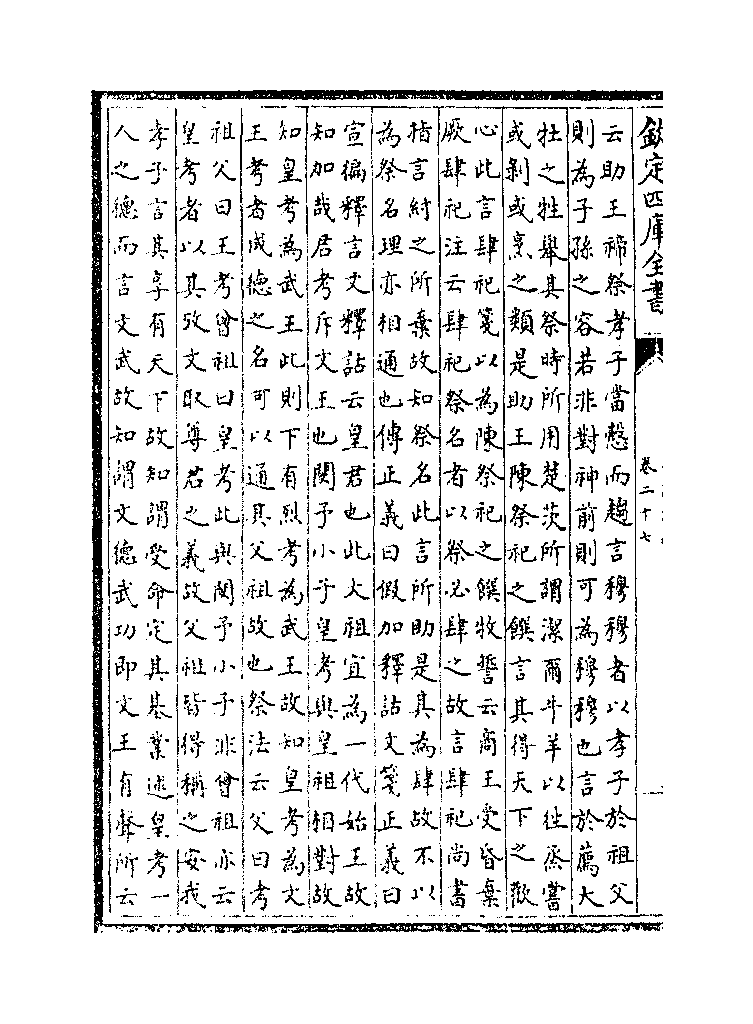 欽定四庫全書
卷二十七
云助王禘祭孝子當慤而趨言穆穆者以孝子於祖父
則為子孫之容若非對神前則可為穆穆也言於薦大
牡之牲舉其祭時所用楚茨所謂潔爾牛羊以往烝嘗
或剝或烹之類是助王陳祭祀之饌言其得天下之歡
心此言肆祀箋以為陳祭祀之饌牧誓云商王受昏棄
厥肆祀注云肆祀祭名者以祭必肆之故言肆祀尚書
指言紂之所棄故知祭名此言所助是其為肆故不以
為祭名理亦相通也傳正義曰假加釋詁文箋正義曰
宣徧釋言文釋詁云皇君也此大祖宜為一代始王故
知加哉君考斥文王也閔予小子皇考與皇祖相對故
知皇考為武王此則下有烈考為武王故知皇考為文
王考者成德之名可以通其父祖故也祭法云父曰考
祖父曰王考曾祖曰皇考此與閔予小子非曾祖亦云
皇考者以其攷文取尊君之義故父祖皆得稱之安我
孝子言其享有天下故知謂受命定其基業述皇考一
人之德而言文武故知謂文德武功即文王有聲所云